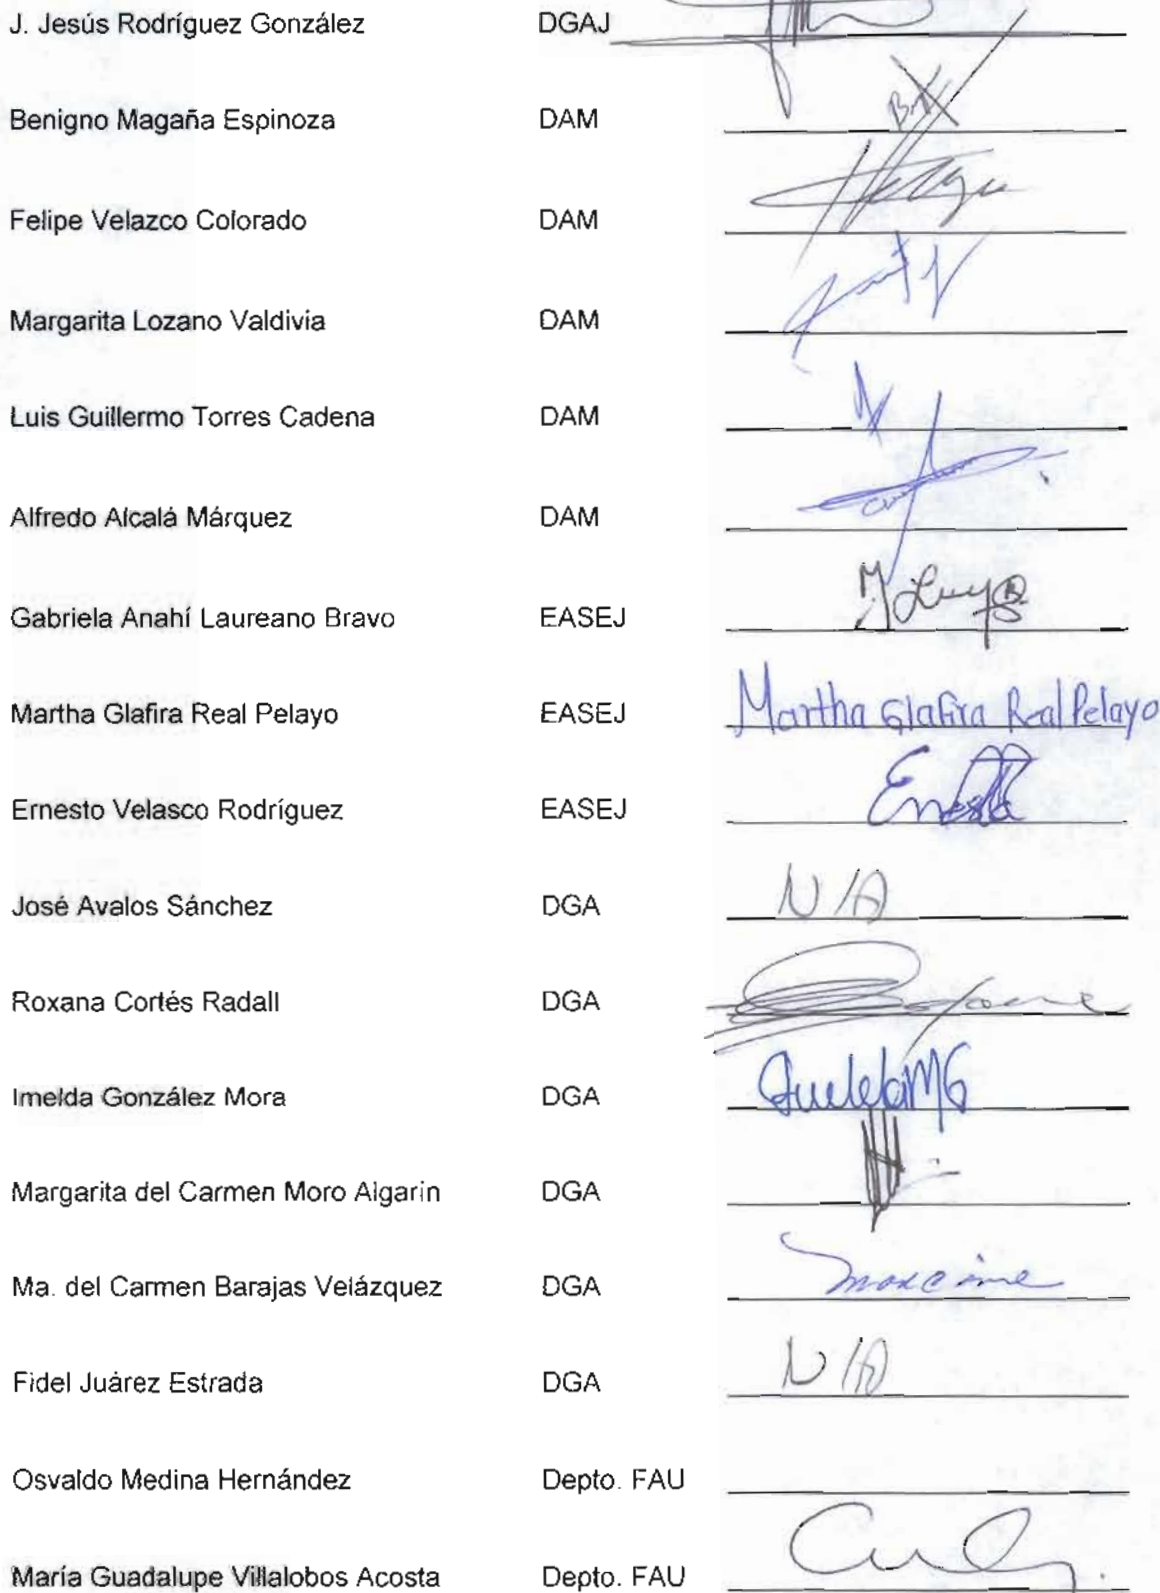 J. Jesús Rodríguez González DGAJ
Benigno Magaña Espinoza DAM
Felipe Velazco Colorado DAM
Margarita Lozano Valdivia DAM
Luis Guillermo Torres Cadena DAM
Alfredo Alcalá Márquez DAM
Gabriela Anahí Laureano Bravo EASEJ
Martha Glafira Real Pelayo EASEJ Martha Glafira Real Pelayo
Ernesto Velasco Rodríguez EASEJ
José Avalos Sánchez DGA N/A
Roxana Cortés Radall DGA
Imelda González Mora DGA
Margarita del Carmen Moro Algarin DGA
Ma. del Carmen Barajas Velázquez DGA
Fidel Juárez Estrada DGA N/A
Osvaldo Medina Hernández Depto. FAU
María Guadalupe Villalobos Acosta Depto. FAU